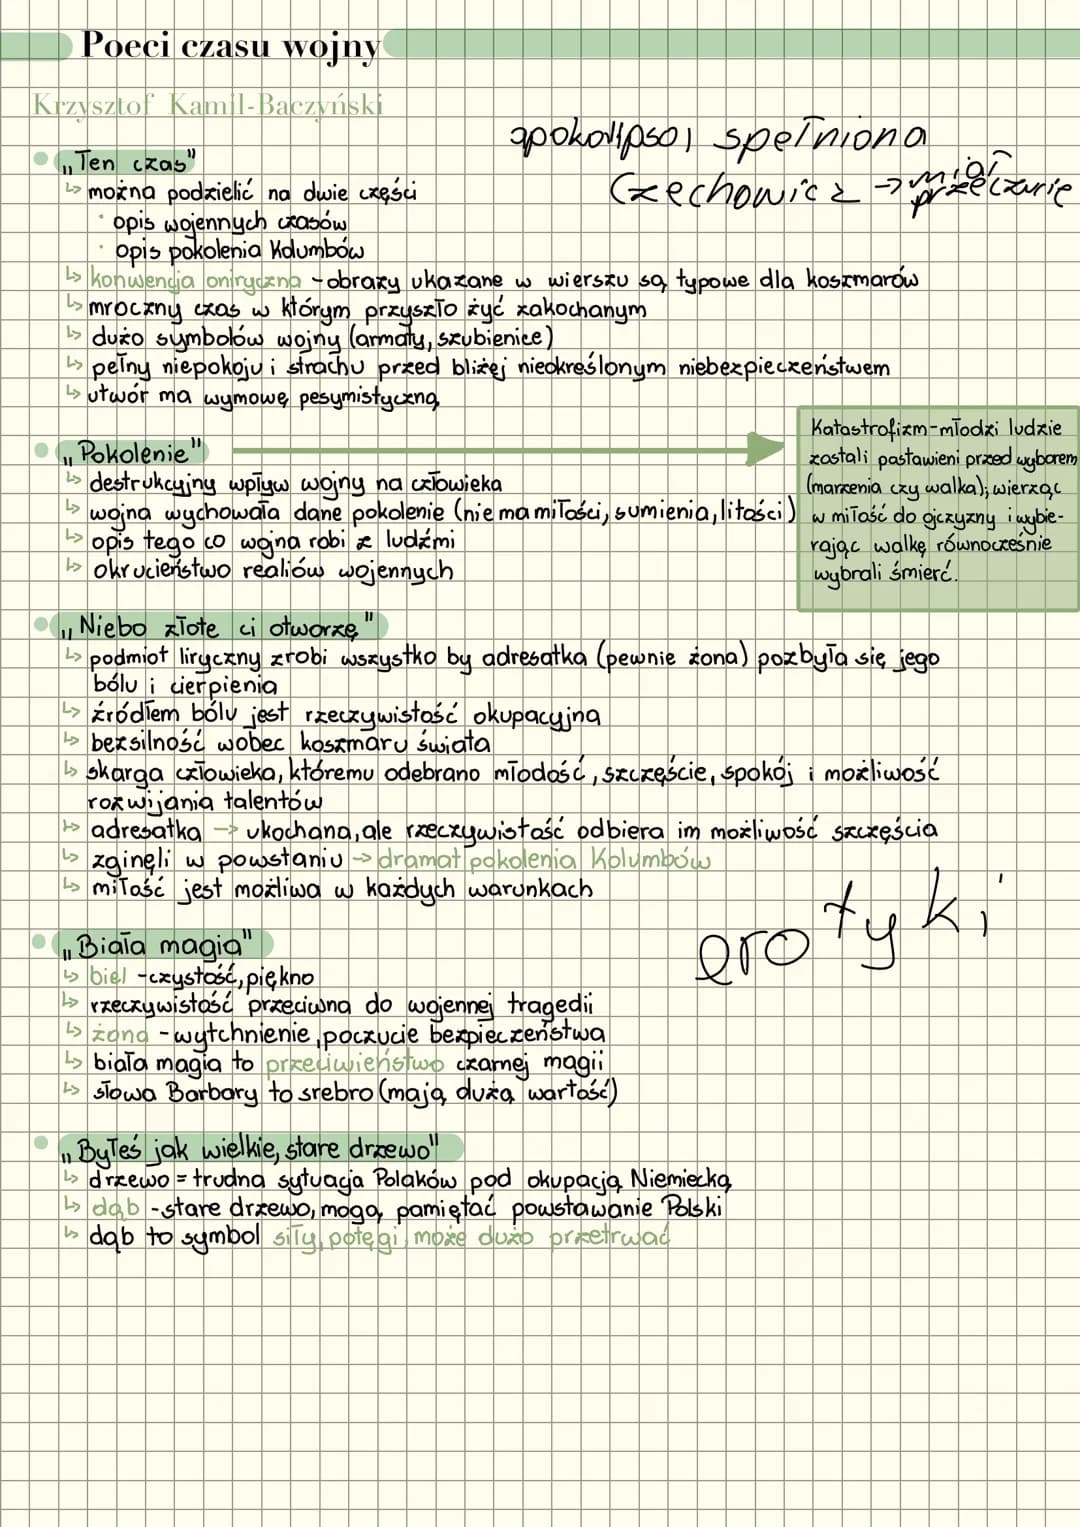 Poeci czasu wojny
Krzysztof Kamil-Baczyński
apokalipsa spełniona
Czechowicz → miał
przeczucie
„Ten czas"
↳ można podzielić na dwie części
· opis wojennych czasów
· opis pokolenia Kolumbów
↳ konwencja oniryczna - obrazy ukazane w wierszu są typowe dla koszmarów
↳ mroczny czas w którym przyszło żyć zakochanym
↳ dużo symbolów wojny (armaty, szubienice)
↳ pełny niepokoju i strachu przed bliżej nieokreślonym niebezpieczeństwem
↳ utwór ma wymowę pesymistyczną
„Pokolenie"
↳ destrukcyjny wpływ wojny na człowieka
↳ wojna wychowała dane pokolenie (nie ma miłości, sumienia, litości)
↳ opis tego co wojna robi z ludźmi
↳ okrucieństwo realiów wojennych
Katastrofizm-młodzi ludzie
zostali postawieni przed wyborem
(marzenia czy walka); wierząc
w miłość do ojczyzny i wybie-
rając walkę równocześnie
wybrali śmierć.
„Niebo złote ci otworzę"
↳ podmiot liryczny zrobi wszystko by adresatka (pewnie żona) pozbyła się jego
bólu i cierpienia
↳ źródłem bólu jest rzeczywistość okupacyjna
↳ bezsilność wobec koszmaru świata
↳ skarga człowieka, któremu odebrano młodość, szczęście, spokój i możliwość
rozwijania talentów
↳ adresatka → ukochana, ale rzeczywistość odbiera im możliwość szczęścia
↳ zginęli w powstaniu → dramat pokolenia Kolumbów
↳ miłość jest możliwa w każdych warunkach
erotyki
„Biała magia"
↳ biel - czystość, piękno
↳ rzeczywistość przeciwna do wojennej tragedii
↳ żona - wytchnienie, poczucie bezpieczeństwa
↳ biała magia to przeciwieństwo czarnej magii
↳ słowa Barbary to srebro (mają dużą wartość)
„Byłeś jak wielkie, stare drzewo"
↳ drzewo = trudna sytuacja Polaków pod okupacją Niemiecką
↳ dąb - stare drzewo, mogą pamiętać powstawanie Polski
↳ dąb to symbol siły, potęgi, może dużo przetrwać